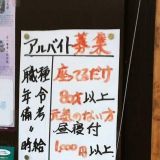 アルバイト募集
職種 座てるだけ
年令 80才以上
備考 元気のない方
昼寝付
時給 1,000円以上